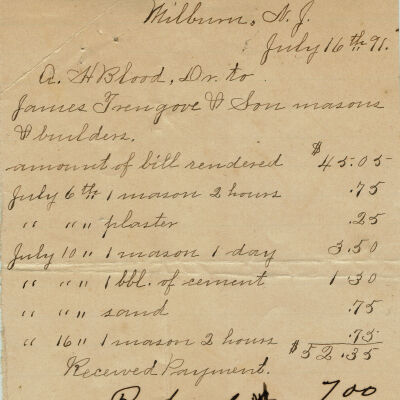 Milburn, N. J.
July 16th 91.
A. H Blood, Dr. to
James Trengove & Son masons
& builders.
amount of bill rendered $45.05
July 6th 1 mason 2 hours .75
" " " plaster .25
July 10 " 1 mason 1 day 3.50
" " " 1 bbl. of cement 1 30
" " " sand .75
" 16 " 1 mason 2 hours .75
$52.35
Received Payment.
700